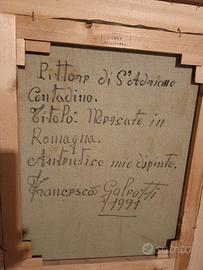 Pittore di S'Adriano
Contadino.
Titolo: Mercato in
Romagna.
Autentico mio dipinto.
Francesco Galeotti
1991
subito